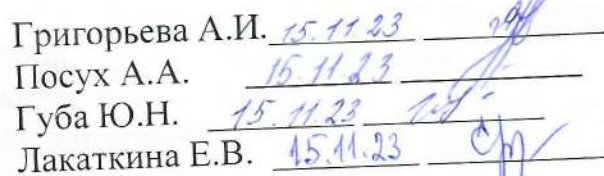 Григорьева А.И. 15.11.23
Посух А.А. 15.11.23
Губа Ю.Н. 15.11.23
Лакаткина Е.В. 15.11.23